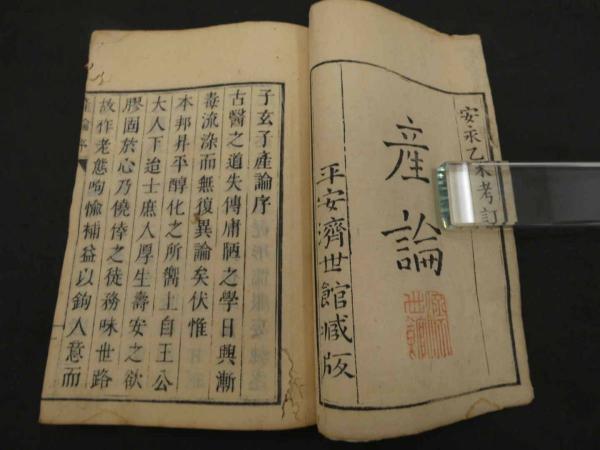 安永乙未考訂
產論
平安濟世館藏版
子玄子產論序
古醫之道失傳庸陋之學日興漸
毒流涤而無復異論矣伏惟
本邦升平醇化之所嚮上自王公
大人下迨士庶人厚生壽安之欲
膠固於心乃僥倖之徒務味世路
故作老態呴愉補益以鉤人意而
產論序